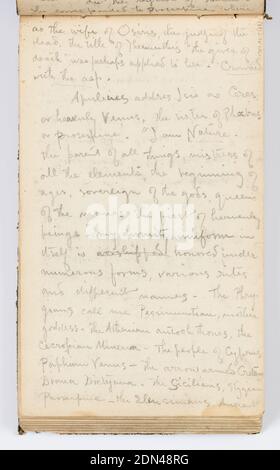 as the wife of Osiris, the judge of the
dead, the title of Thermuthis "the giver of
death" was perhaps applied to her.
with the asp.
Apuleius addres Isis as Ceres
or heavenly Venus, the sister of Phoebus
or Proserpine. "I am Nature -
the parent of all things, mistress of
all the elements, the beginning of
ages, sovereign of the gods, queen
of the manes, the first of heavenly
beings - my divinity, uniform in
itself is honored under
numerous forms, various rites
and different names - The Phry-
gians call me Pessinuntian, mother
goddess - the Athenian autochthones, the
Cecropian Minerva - The people of Cyprus,
Paphian Venus - the arrow armed Cretans
Diana Dictynna - the Sicilians, Stygian
Proserpine - the Eleusinians,
alamy
www.alamy.com
2DN48RG